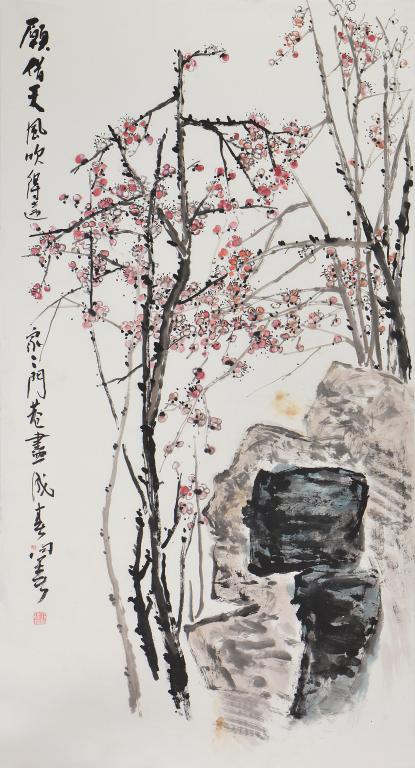 願借天風吹得遠 家〻門巷盡成春